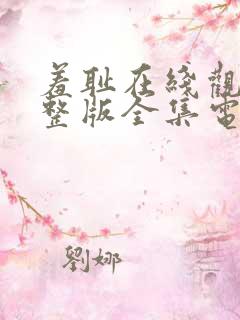 羞耻在綫觀
整版全集電
劉娜